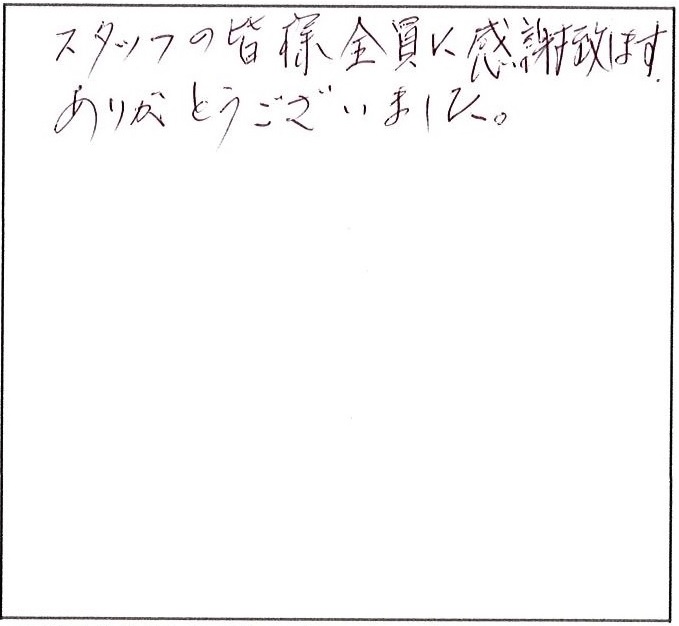 スタッフの皆様全員に感謝致します
ありがとうございました。